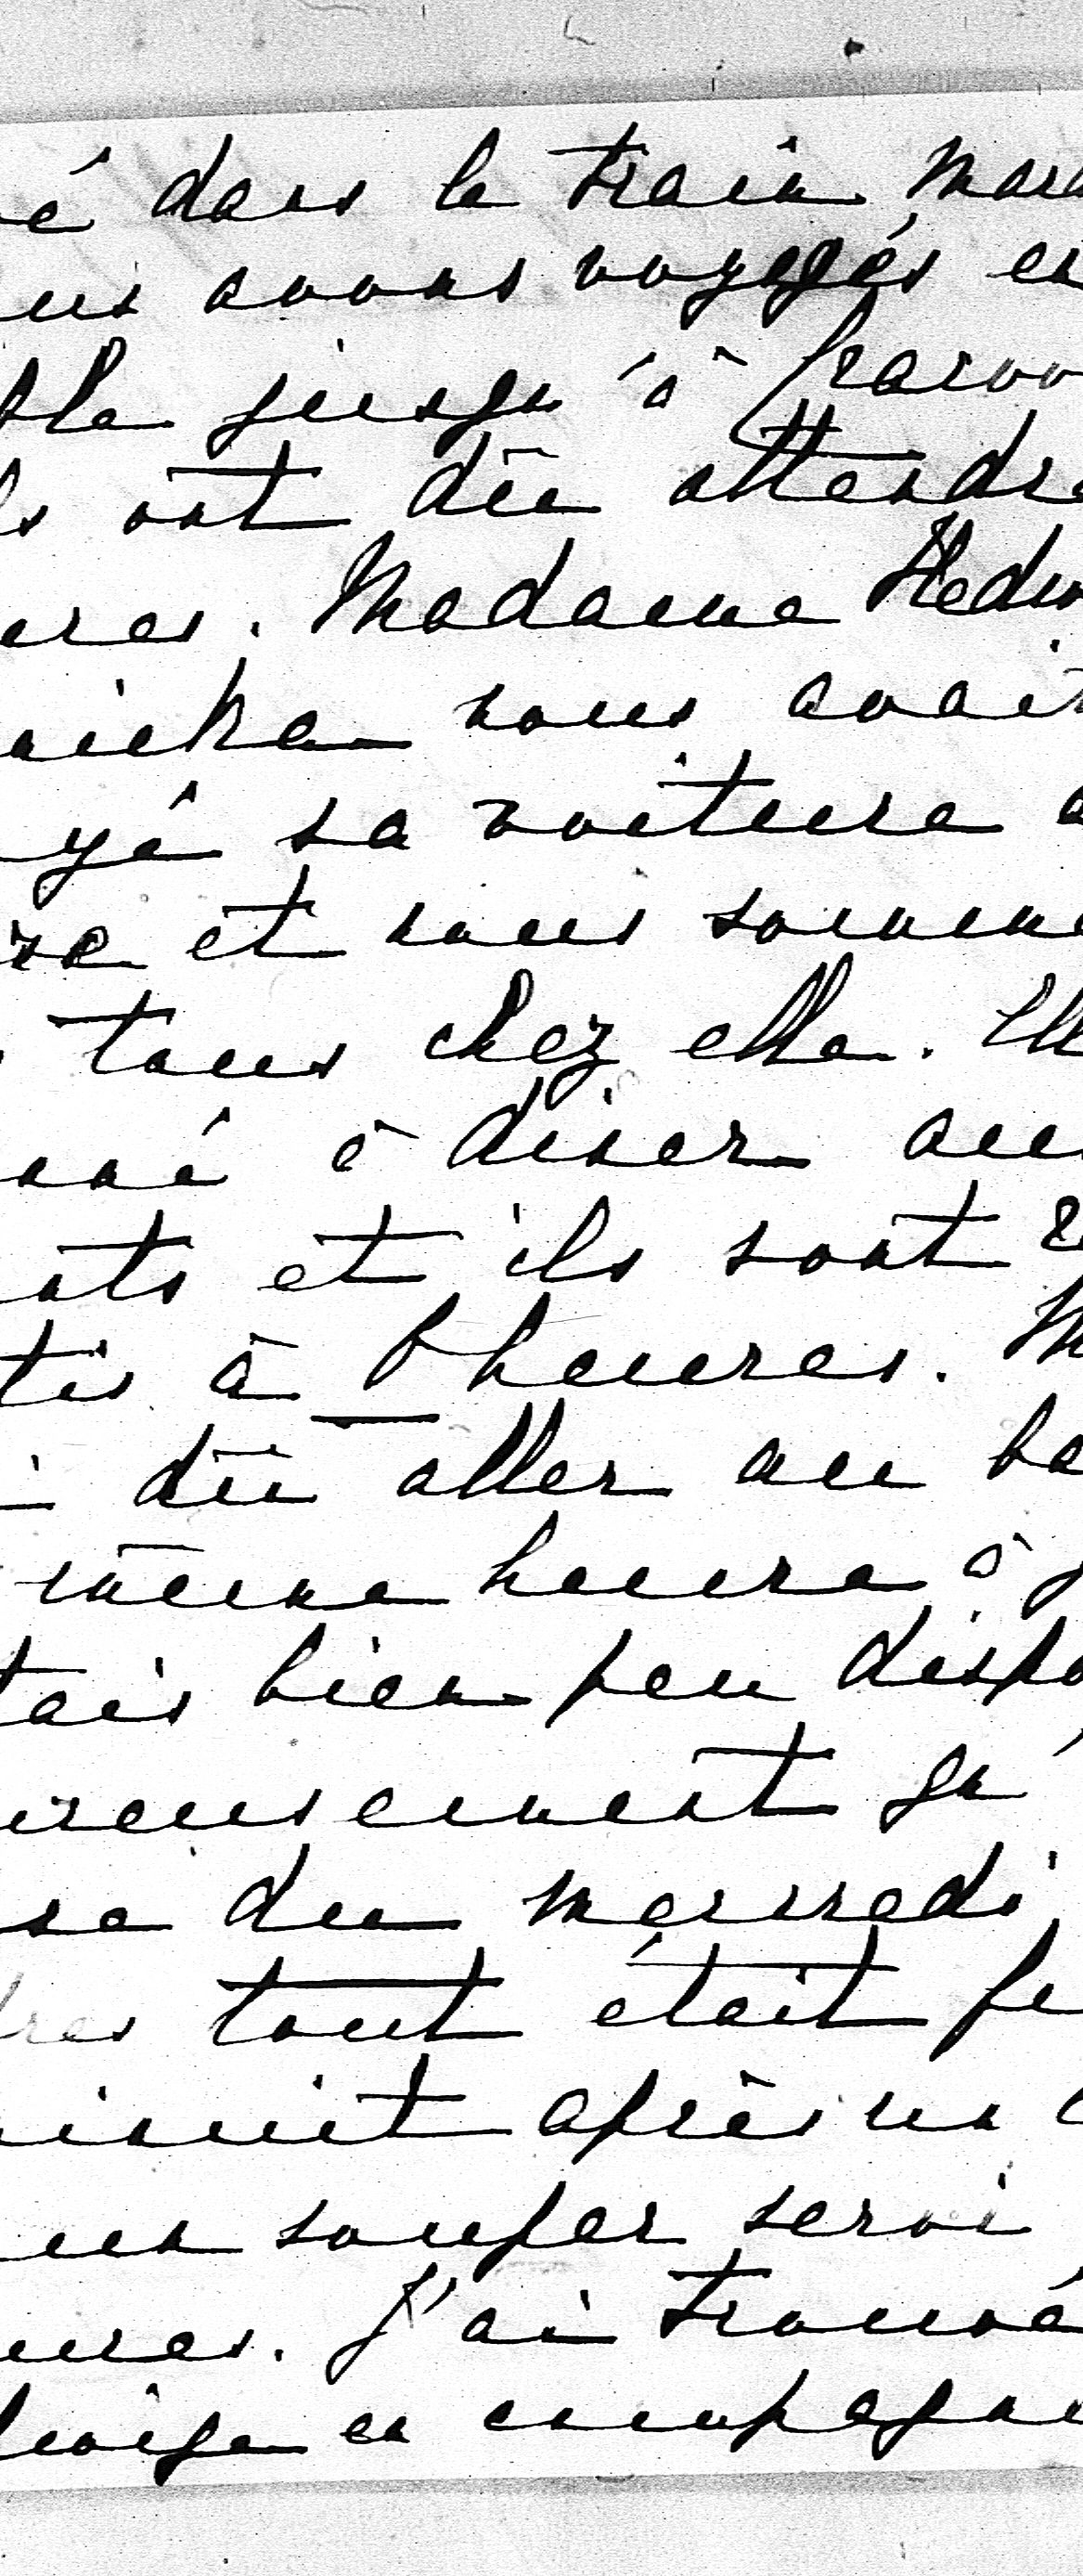 é dans le train Mara
us avons voyagés en
ble jusqu'à
ls ont dû attendre
ures. Madame Hedw
nous avait
yé sa voiture a
re et nous somme
tous chez elle. Ell
nné à diner au
nts et ils sont
tis à heures. M
i dû aller au ba
même heure à
tais bien peu dispo
ureusement qu'
se du mercredi
res tout était
inuit après un
un souper servi
ures. J'ai trouvé
en compagni